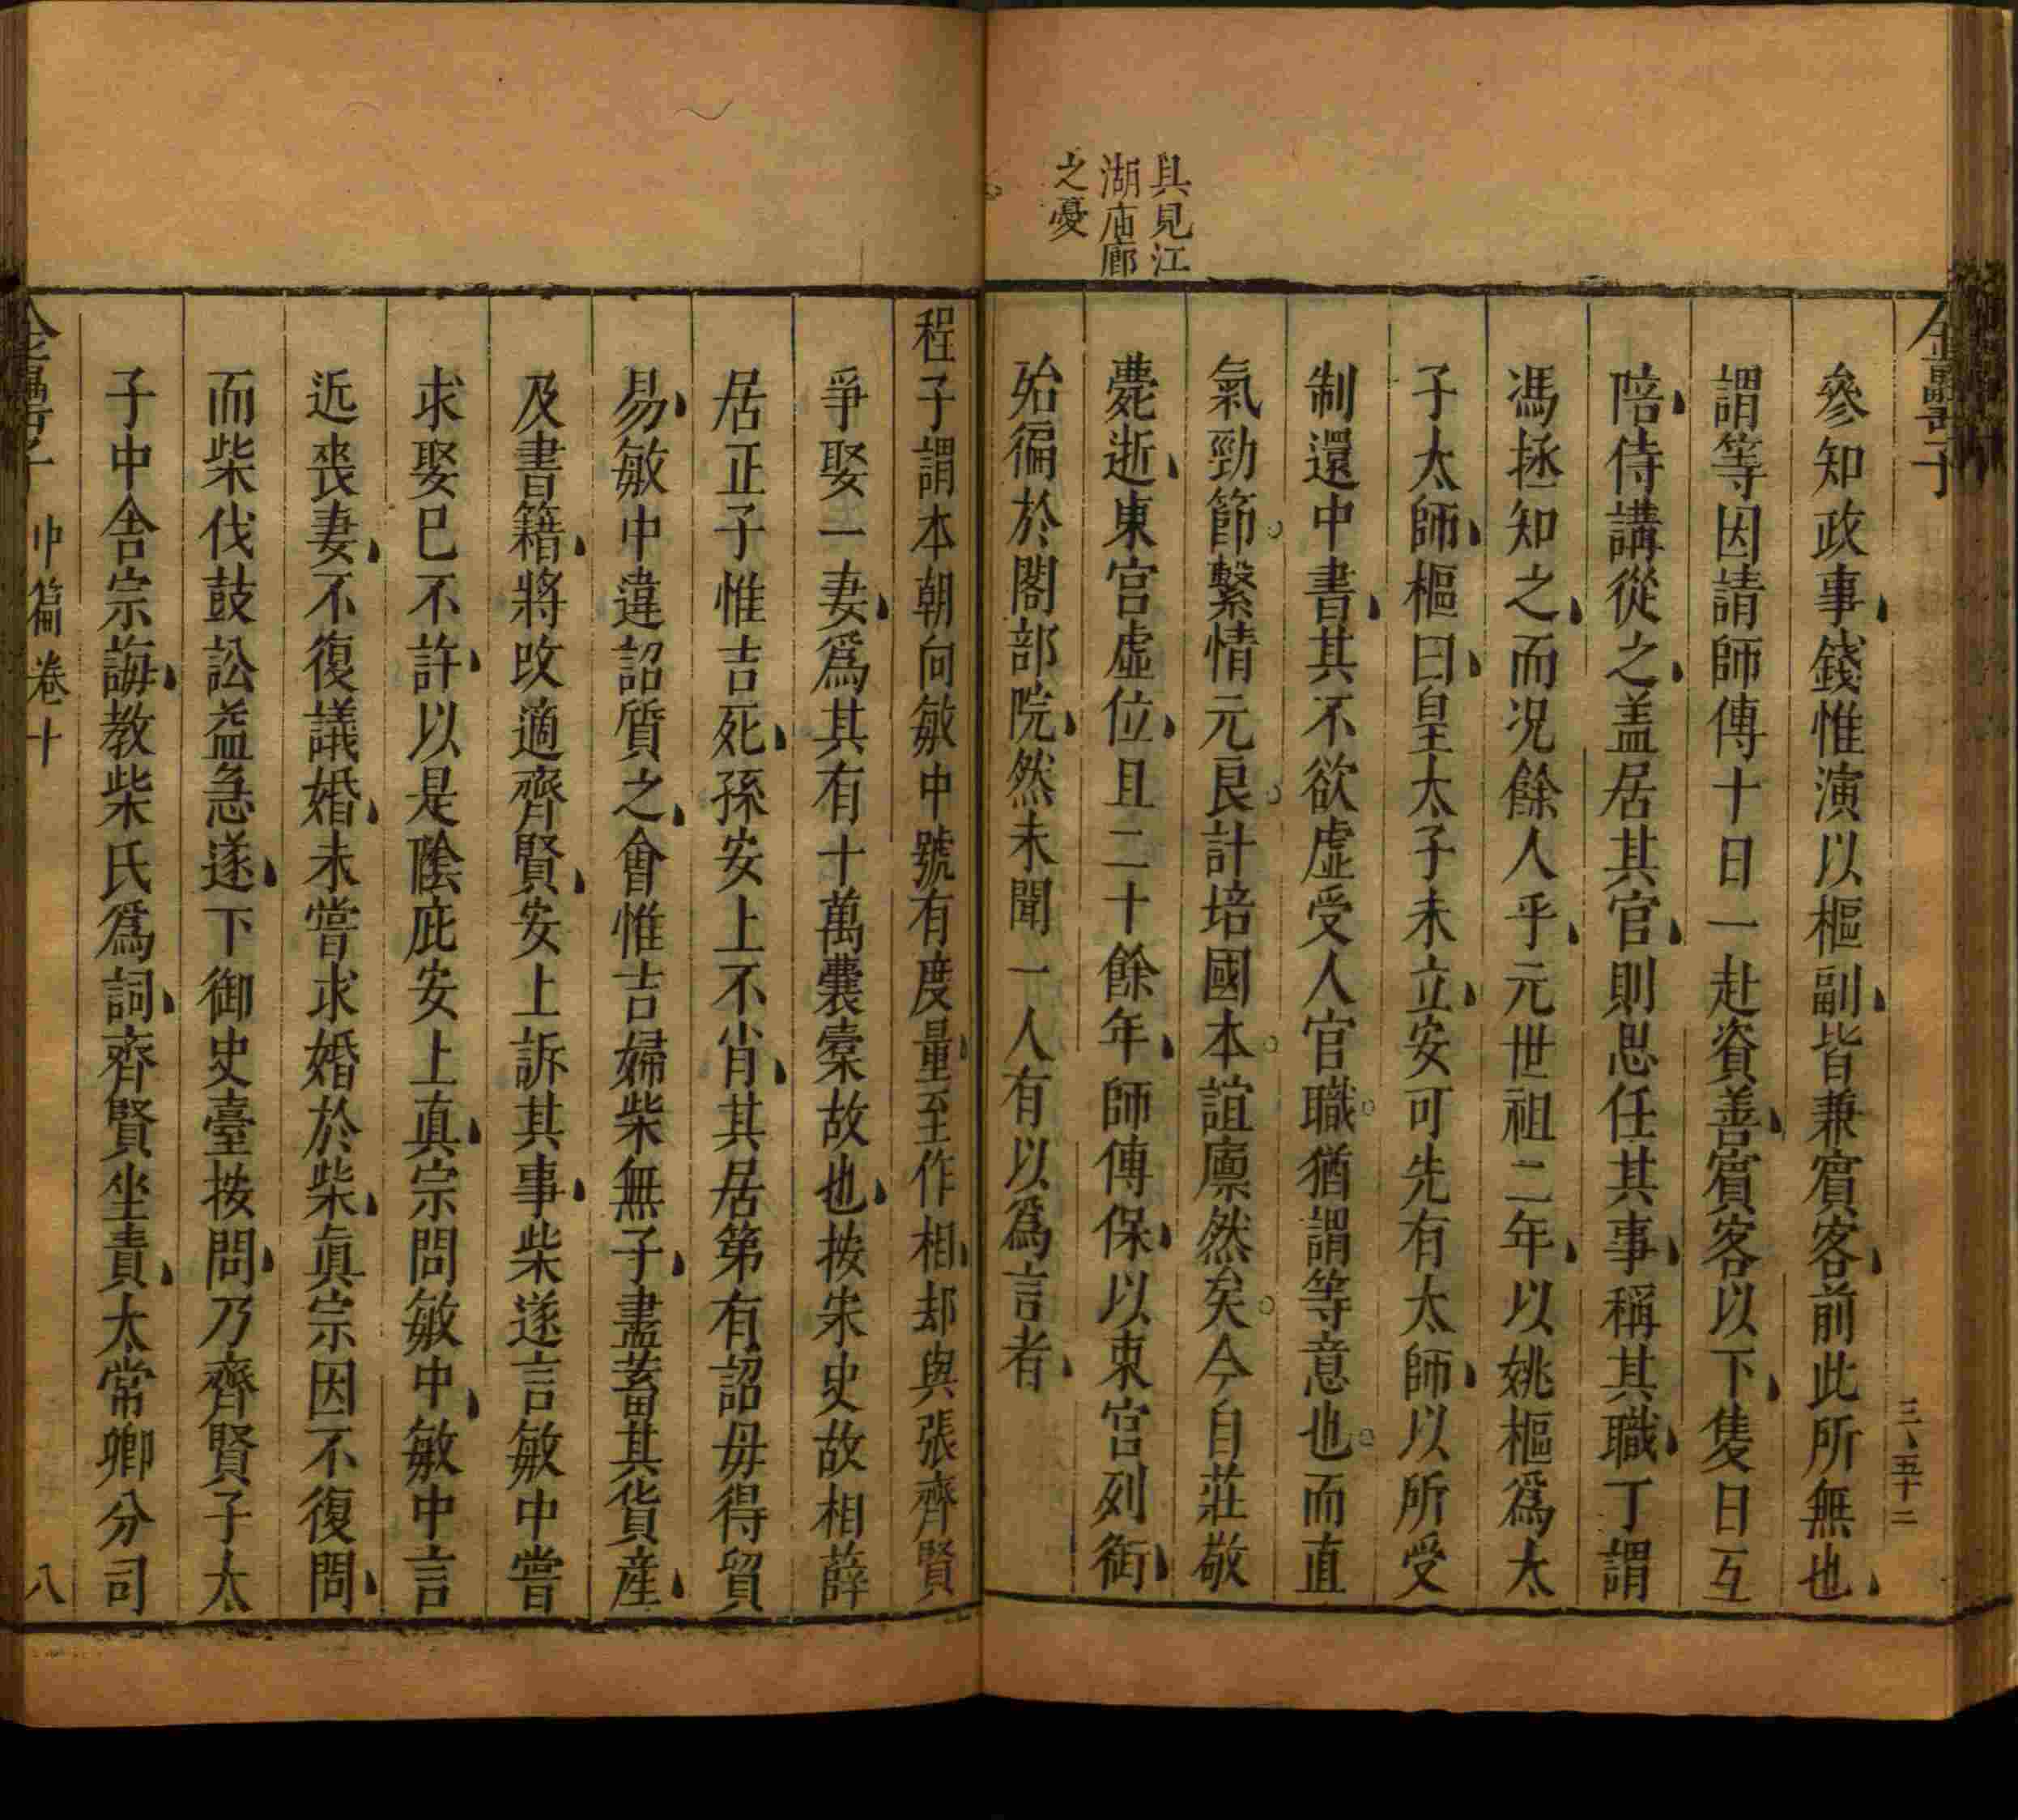 具見江
湖庙廊
之憂
金罍子
三、五十二
參知政事錢惟演以樞副皆兼賔客前此所無也
謂等因請師傅十日一赴資善賔客以下隻日互
陪侍講從之盖居其官則思任其事稱其職丁謂
馮拯知之而况餘人乎元世祖二年以姚樞爲太
子太師樞曰皇太子未立安可先有太師以所受
制還中書其不欲虚受人官職猶謂等意也而直
氣勁節繫情元良計培國本誼廪然矣今自莊敬
薨逝東宫虚位且二十餘年師傅保以東宫列銜
殆徧於閣部院然未聞一人有以爲言者
程子謂本朝向敏中號有度量至作相却與張齊賢
爭娶一妻爲其有十萬囊橐故也按宋史故相薛
居正子惟吉死孫安上不肖其居第有詔毋得貿
易敏中違詔質之會惟吉婦柴無子盡蓄其貨産
及書籍將改適齊賢安上訴其事柴遂言敏中嘗
求娶巳不許以是隂庇安上真宗問敏中敏中言
近喪妻不復議婚未嘗求婚於柴真宗因不復問
而柴伐鼓訟益急遂下御史臺按問乃齊賢子太
子中舍宗誨教柴氏爲詞齊賢坐責太常卿分司
金罍子 中篇卷十 八